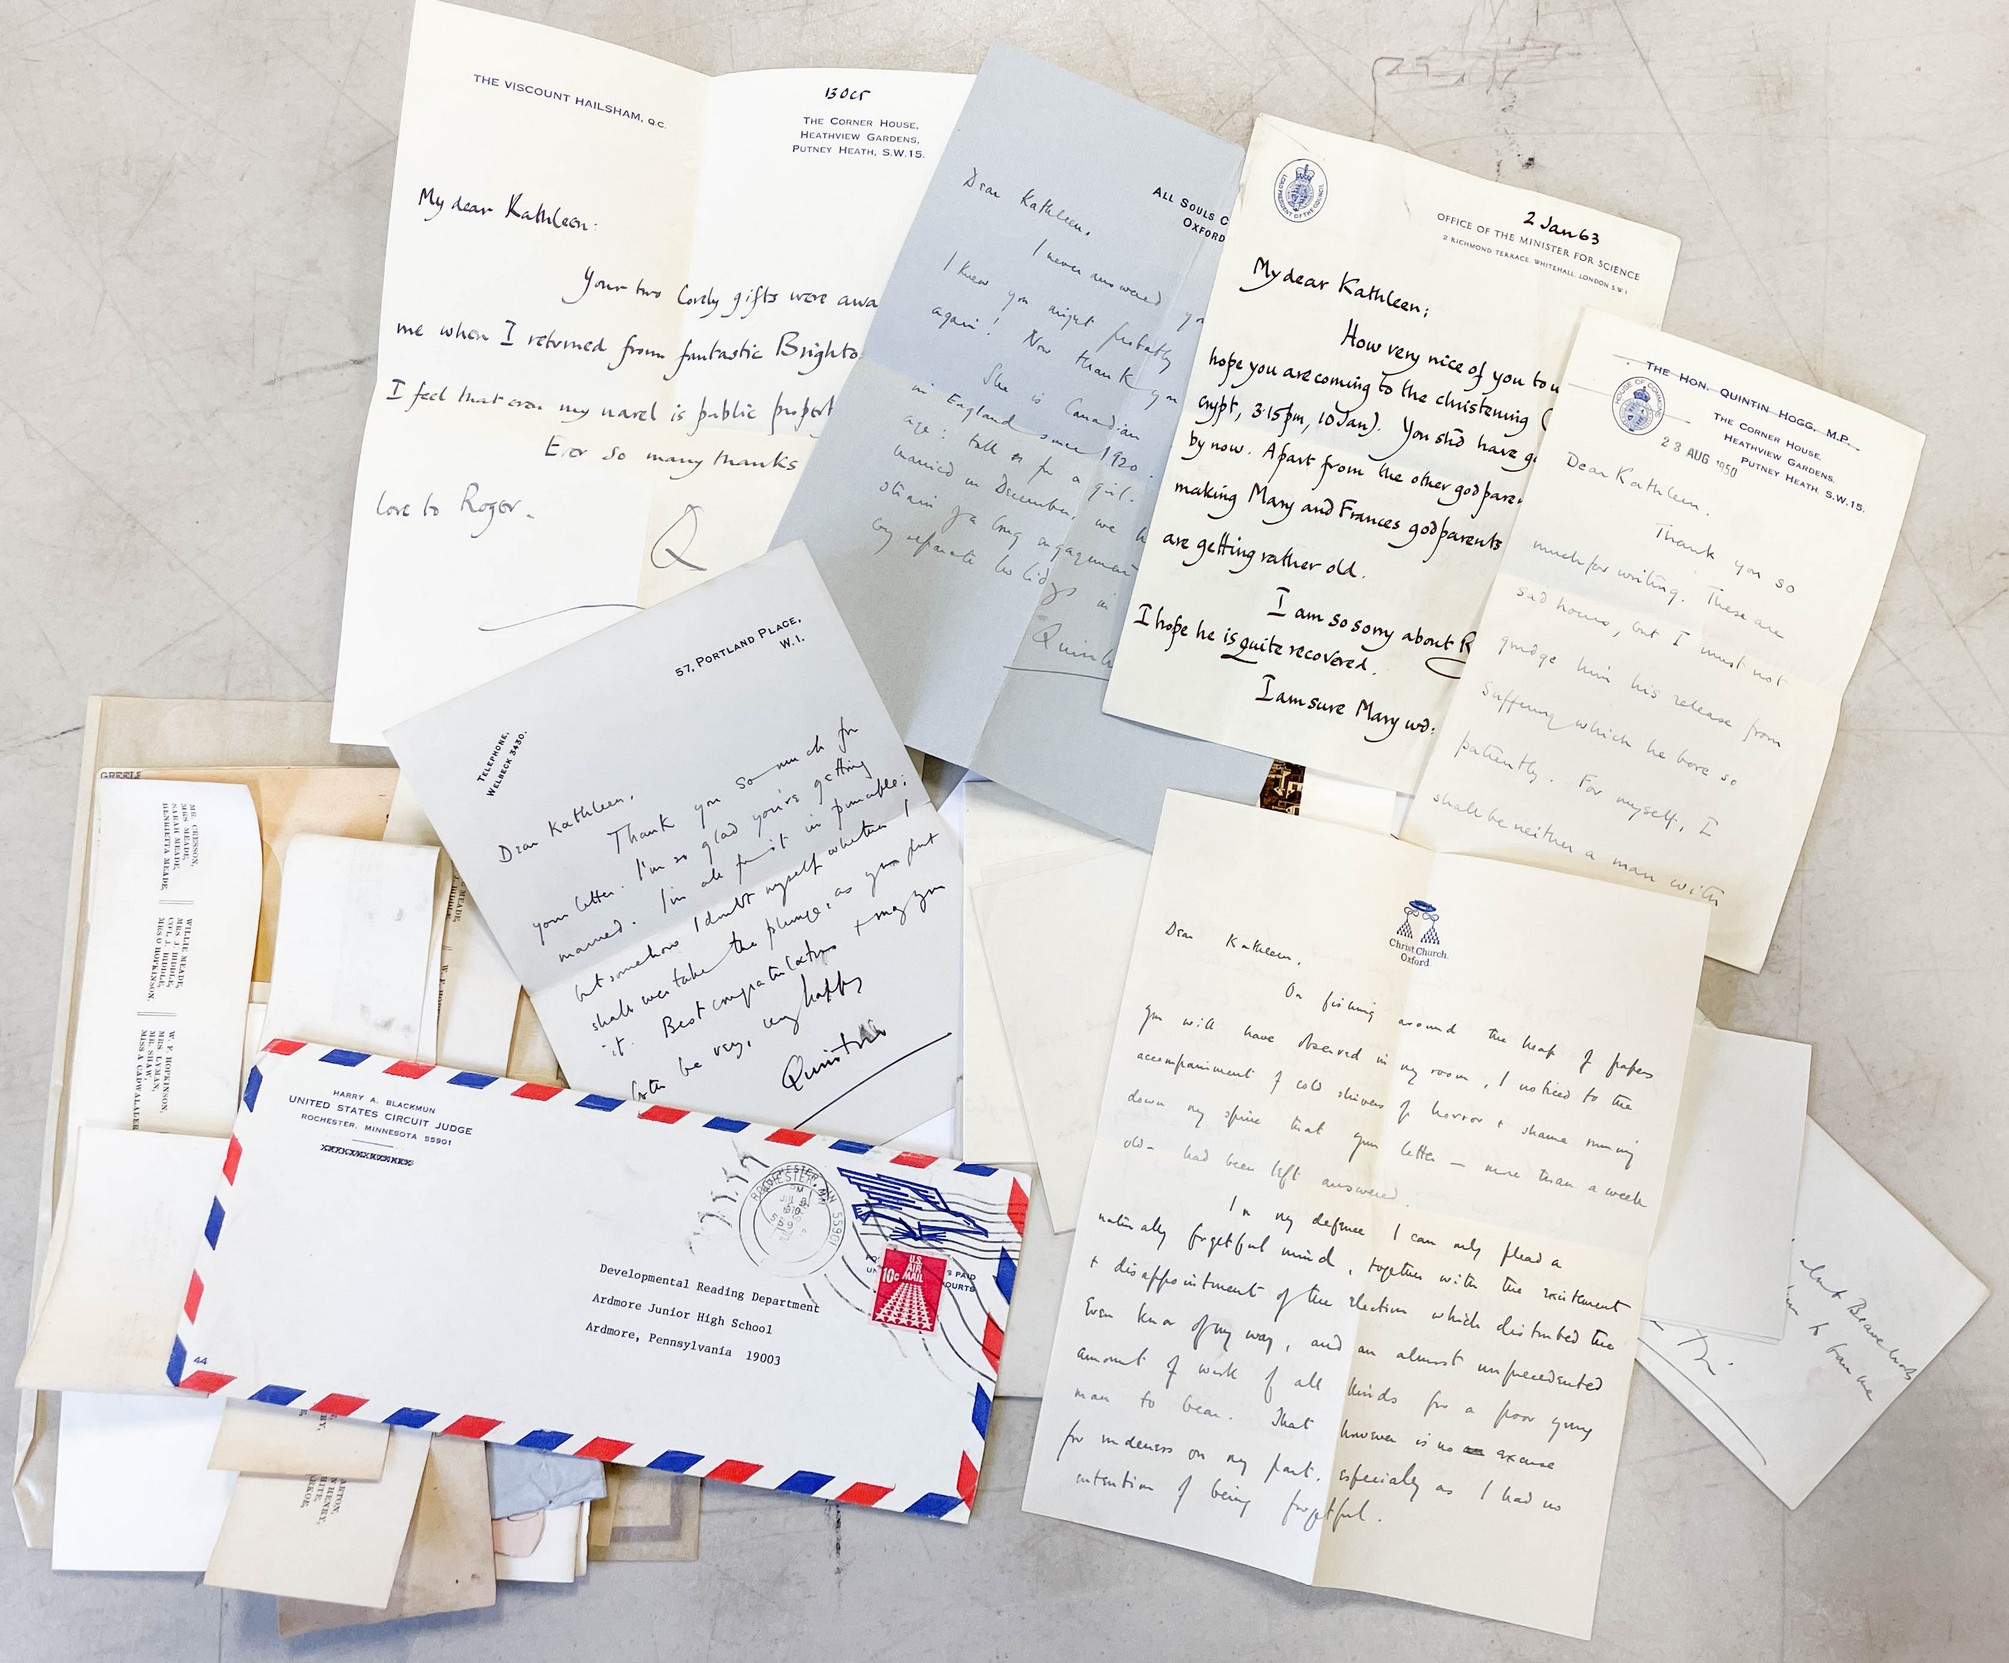 THE VISCOUNT HAILSHAM, Q.C.
13 Oct
THE CORNER HOUSE,
HEATHVIEW GARDENS,
PUTNEY HEATH, S.W.15.
My dear Kathleen:
Your two lovely gifts were awa
me when I returned from fantastic Brighto
I feel that even my navel is public propert
Ever so many thanks
love to Roger.
Q
ALL SOULS C
OXFORD
Dear Kathleen,
I never answered yo
I knew you might probably
again! Now thank you
She is Canadian
in England since 1920.
age: tall for a girl.
married in December, we h
strain of a long engagement
separate holidays in
Quin
LORD PRESIDENT OF THE COUNCIL
2 Jan 63
OFFICE OF THE MINISTER FOR SCIENCE
2 RICHMOND TERRACE, WHITEHALL, LONDON S.W.1
My dear Kathleen;
How very nice of you to w
hope you are coming to the christening (
crypt, 3.15pm, 10 Jan). You shd have g
by now. Apart from the other godpare
making Mary and Frances godparents
are getting rather old.
I am so sorry about R
I hope he is quite recovered.
I am sure Mary wd.
THE HON. QUINTIN HOGG, M.P.
HOUSE OF COMMONS
THE CORNER HOUSE,
HEATHVIEW GARDENS,
PUTNEY HEATH, S.W.15.
23 AUG 1950
Dear Kathleen.
Thank you so
much for writing. These are
sad hours, but I must not
grudge him his release from
suffering which he bore so
patiently. For myself, I
shall be neither a man with
57, PORTLAND PLACE,
W.1.
TELEPHONE,
WELBECK 3430.
Dear Kathleen,
Thank you so much for
your letter. I'm so glad you're getting
married. I'm all for it in principle;
but somehow I doubt myself whether I
shall ever take the plunge, as you put
it. Best congratulations + may you
be very, very happy
Quintin
Christ Church.
Oxford.
Dear Kathleen,
On fishing around the heap of papers
you will have observed in my room, I noticed to the
accompaniment of cold shivers of horror + shame running
down my spine that your letter — more than a week
old - had been left answered.
In my defence I can only plead a
naturally forgetful mind, together with the excitement
+ disappointment of the election which disturbed the
even tenor of my way, and an almost unprecedented
amount of work of all kinds for a poor young
man to bear. That however is no excuse
for rudeness on my part, especially as I had no
intention of being forgetful.
GREELE
MR. CRESSON,
MRS MEADE,
SARAH MEADE,
HENRIETTA MEADE,
WILLIE MEADE,
MRS. J. BIDDLE,
CPL. J. BIDDLE,
MRS O HOPKINSON.
W. F. HOPKINSON,
MRS. LYMAN,
MR. SHAW,
MISS A CADWALADER
HARRY A. BLACKMUN
UNITED STATES CIRCUIT JUDGE
ROCHESTER, MINNESOTA 55901
ROCHESTER, MN 55901
U.S.
AIR
MAIL
10c
S PAID
OURTS
Developmental Reading Department
Ardmore Junior High School
Ardmore, Pennsylvania 19003
44